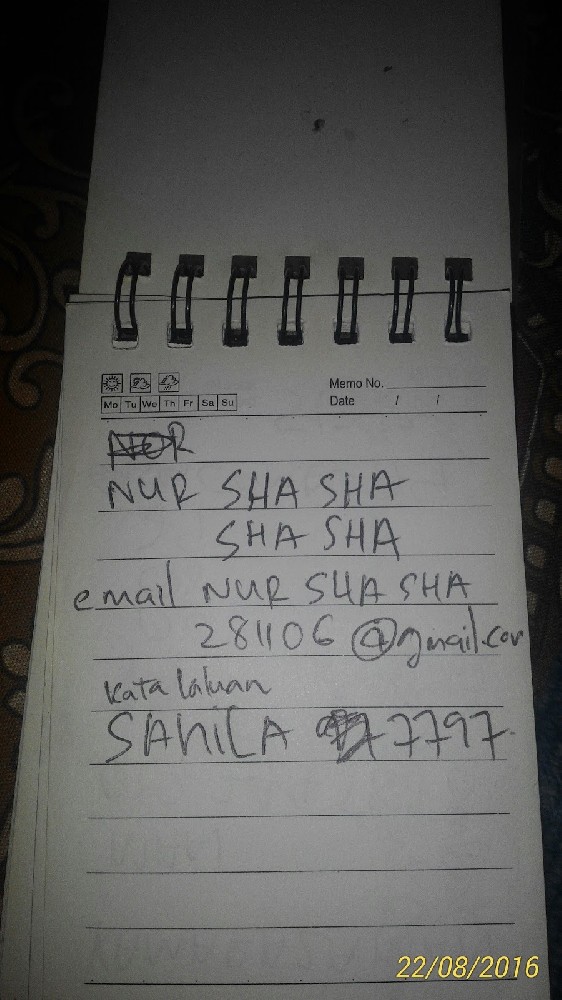 Memo No.
Mo Tu We Th Fr Sa Su
Date / /
NOR
NUR SHA SHA
SHA SHA
email NUR SHA SHA
281106 @gmail.com
kata laluan
SAhiLA 7797
22/08/2016